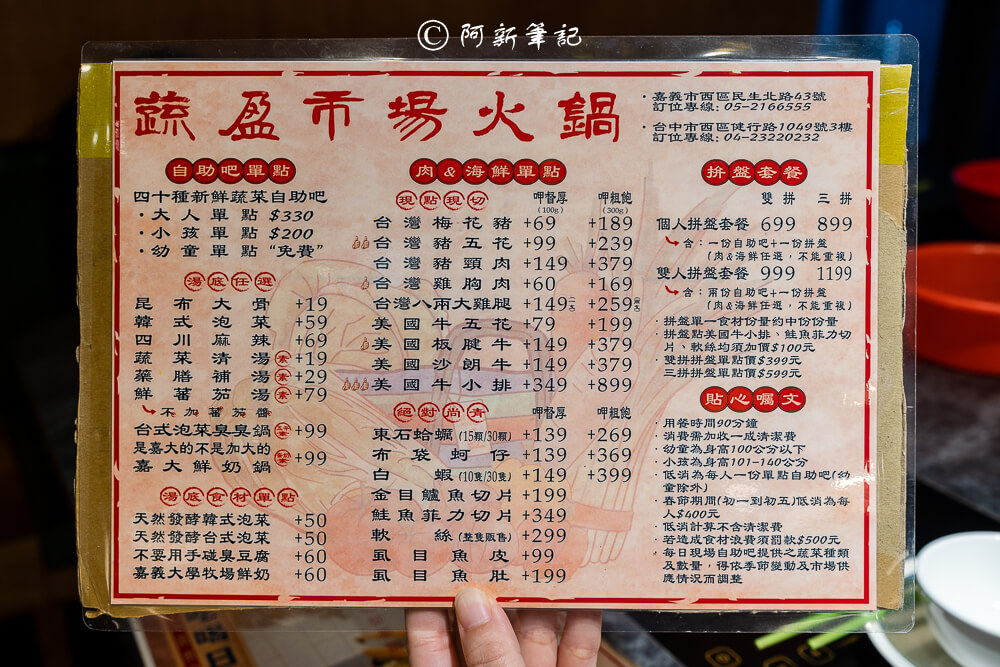 ©阿新筆記
蔬盈市場火鍋
·嘉義市西區民生北路43號
訂位專線：05-2166555
·台中市西區健行路1049號3樓
訂位專線：04-23220232
自助吧單點
四十種新鮮蔬菜自助吧
·大人單點 $330
·小孩單點 $200
·幼童單點 "免費"
湯底任選
昆布大骨 +19
韓式泡菜 +59
四川麻辣 +69
蔬菜清湯 素 +19
藥膳補湯 素 +29
鮮蕃茄湯 素 +79
不加蕃茄醬
台式泡菜臭臭鍋 +99
是嘉大的不是加大的
嘉大鮮奶鍋 +99
湯底食材單點
天然發酵韓式泡菜 +50
天然發酵台式泡菜 +50
不要用手碰臭豆腐 +60
嘉義大學牧場鮮奶 +60
肉&海鮮單點
現點現切 呷督厚(100g) 呷粗飽(300g)
台灣梅花豬 +69 +189
台灣豬五花 +99 +239
台灣豬頸肉 +149 +379
台灣雞胸肉 +60 +169
台灣八兩大雞腿 +149 +259
美國牛五花 +79 +199
美國板腱牛 +149 +379
美國沙朗牛 +149 +379
美國牛小排 +349 +899
絕對尚青 呷督厚 呷粗飽
東石蛤蠣(15顆/30顆) +139 +269
布袋蚵仔 +139 +369
白蝦(10隻/30隻) +149 +399
金目鱸魚切片 +199
鮭魚菲力切片 +349
軟絲(整隻販售) +299
虱目魚皮 +99
虱目魚肚 +199
拼盤套餐
雙拼 三拼
個人拼盤套餐 699 899
含：一份自助吧+一份拼盤
(肉&海鮮任選，不能重複)
雙人拼盤套餐 999 1199
含：兩份自助吧+一份拼盤
(肉&海鮮任選，不能重複)
·拼盤單一食材份量約中份份量
·拼盤點美國牛小排、鮭魚菲力切
片、軟絲均須加價$100元
·雙拼拼盤單點價$399元
三拼拼盤單點價$599元
貼心囑文
·用餐時間90分鐘
·消費需加收一成清潔費
·幼童為身高100公分以下
·小孩為身高101-140公分
·低消為每人一份單點自助吧(幼
童除外)
·春節期間(初一到初五)低消為每
人$400元
·低消計算不含清潔費
·若造成食材浪費須罰款$500元
·每日現場自助吧提供之蔬菜種類
及數量，得依季節變動及市場供
應情況而調整